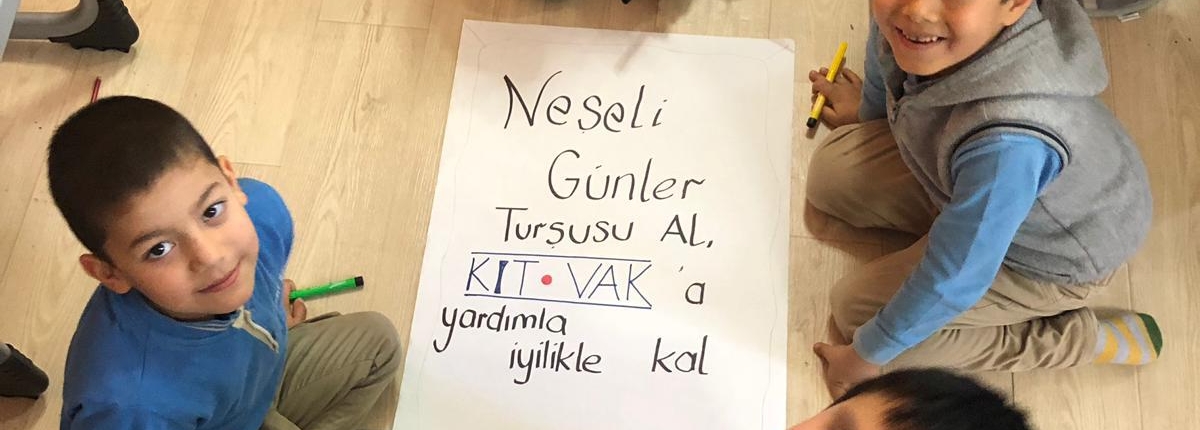 Neşeli
Günler
Turşusu Al,
KIT•VAK 'a
yardımla
iyilikle kal